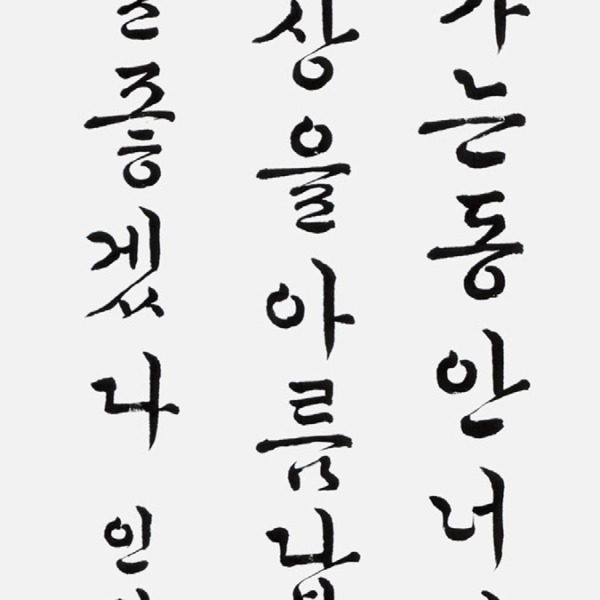 가는동안너
상을아름답
좋겠다 인